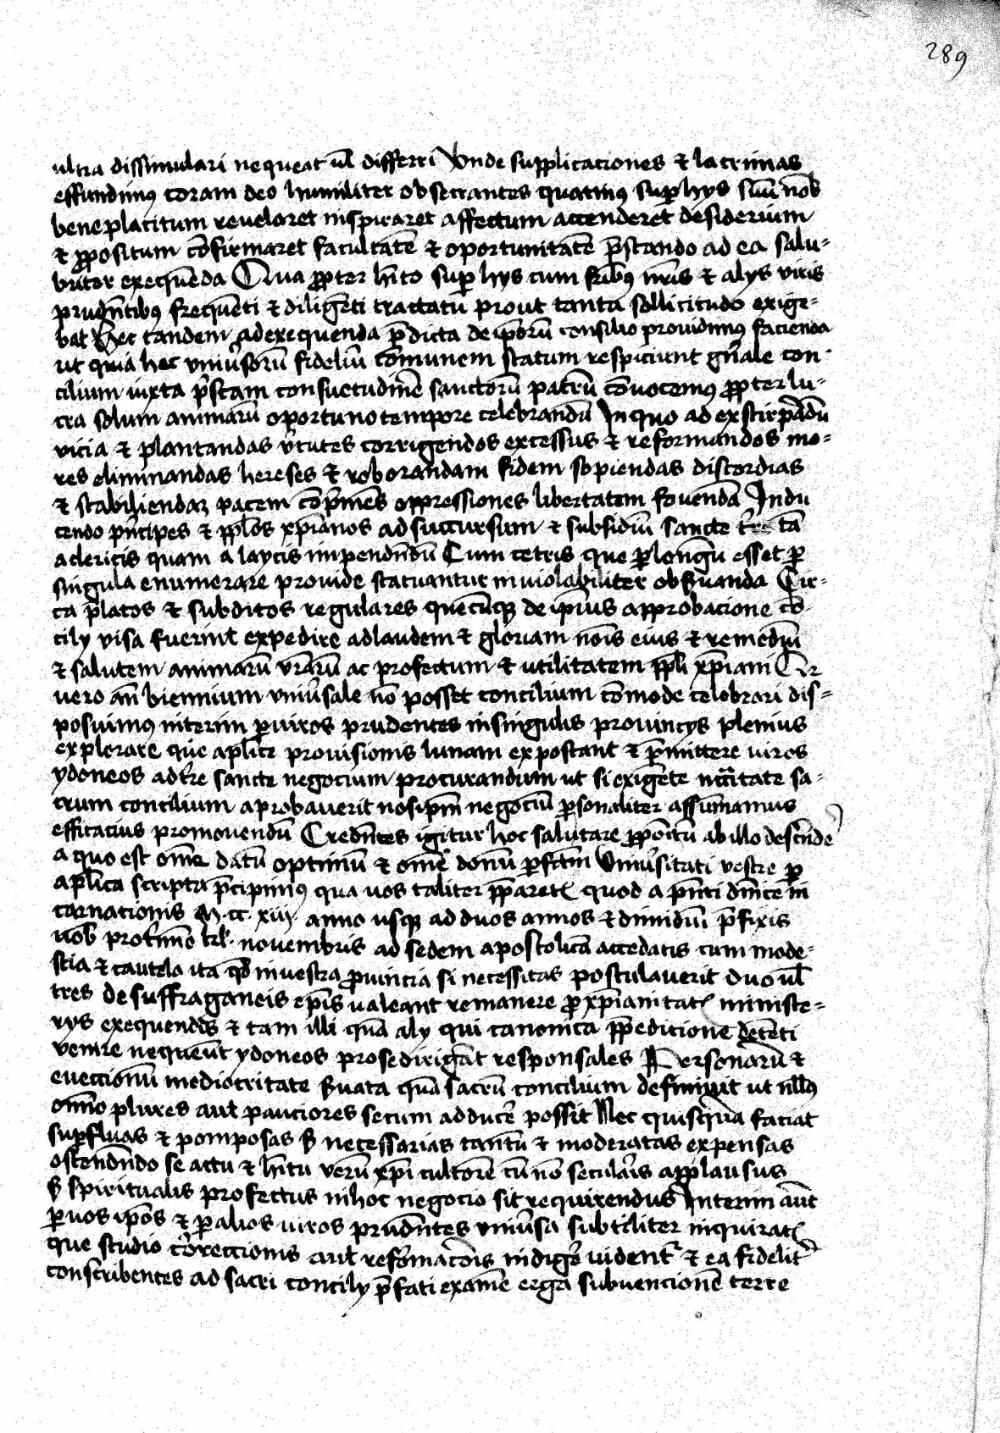 289
ultra dissimulari nequeat ul̄ differri Unde supplicaciones & lacrimas
effundimus coram deo humiliter obsecrantes quatinus sup hys suū nob̄
beneplacitum reveloret inspiraret affectum accenderet desiderium
& ppositum cōfirmaret facultatē & oportunitatē p̄stando ad ea salu-
briter exequēda Qua ppter h̄ito sup hys cum frībus nr̄is & alys viris
prudn̄tibus frequēti & diligēti tractatu prout tanta sollicitudo exige-
bat Hec tandem ad exequenda p̄dicta de ip̄orū consilio providimus facienda
ut quia hec univ̄sorū fideliū cōmunem statum respiciunt gn̄ale con-
cilium iuxta p̄scam consuetudinē sanctorū patrū cōvocemus ppter lu-
cra solum animarū oportuno tempore celebrandū In quo ad exstirpādū
vicia & plantandas v̄tutes corrigendos excessus & reformandos mo-
res eliminandas hereses & roborandam fidem sopiendas discordias
& stabiliendaz pacem cōp̄mēs oppressiones libertatem fovendā Indu
cendo pn̄cipes & ppl̄os xp̄ianos ad succursum & subsidiū sancte tr̄e tā
a clericis quam a laycis impendn̄dū Cum cetris que plongū esset p
singula enumerare provide statuantur inviolabiliter observanda Cir-
ca p̄latos & subditos regulares quecūqz de ip̄ius approbacione cō-
cily visa fuerint expedire ad laudem & gloriam nōis eius & remediū
& salutem animarū vr̄arū ac profectum & utilitatem ppl̄i xp̄iani Qr
vero an̄ biennium univ̄sale nō posset concilium cōmode celebrari dis-
posuimus interim p viros prudentes in singulis provincys plenius
explorare que apl̄ice provisionis lunam expostant & p̄mittere viros
ydoneos ad tr̄e sancte negocium procurandum ut si exigēte nc̄citate sa-
crum concilium aprobaverit nos ip̄m negociū psonaliter assumamus
efficacius promovendū Credn̄tes igitur hoc salutare ppōitū ab illo descēde
a quo est om̄e datū optimū & om̄e donū pfc̄m Univ̄sitati vestre p
apl̄ica scripta p̄cipimus qua vos taliter pparetꝭ quod a pn̄ti dn̄ice in
carnacionis M.cc.xiij anno usqz ad duos annos & dimidiū p̄fixis
vob̄ pro t̄mino kl̄. novembris ad sedem apostolicā accedatis cum mode-
stia & cautela ita qd̄ in vestra provincia si necessitas postulaverit duo ul̄
tres de suffraganeis ep̄is valeant remanere p xp̄ianitatꝭ ministe-
rys exequendis & tam illi quā aly qui canonica ppeditione detēti
venire nequeūt ydoneos pro se dirigāt responsales Personarū &
evectionū mediocritate s̄vata quā sacrū concilium definivit ut nll̄us
om̄īo plures aut pauciores secum adducē possit Nec quisquā faciat
supfluas & pomposas s̄ necessarias tantū & moderatas expensas
ostendn̄do se actu & h̄itu verū xp̄i cultorē cū nō seculāis applausus
s̄ spiritualis profectus in hoc negocio sit requirendus Interim aūt
p vos ip̄os & p alios viros prudn̄tes univ̄sa subtiliter inquiratꝭ
que studio cōreccionis aut refōmac̄ois indigē vident̄ & ea fidelit̄
conscribentes ad sacri concily p̄fati examē erga subvencionē terre